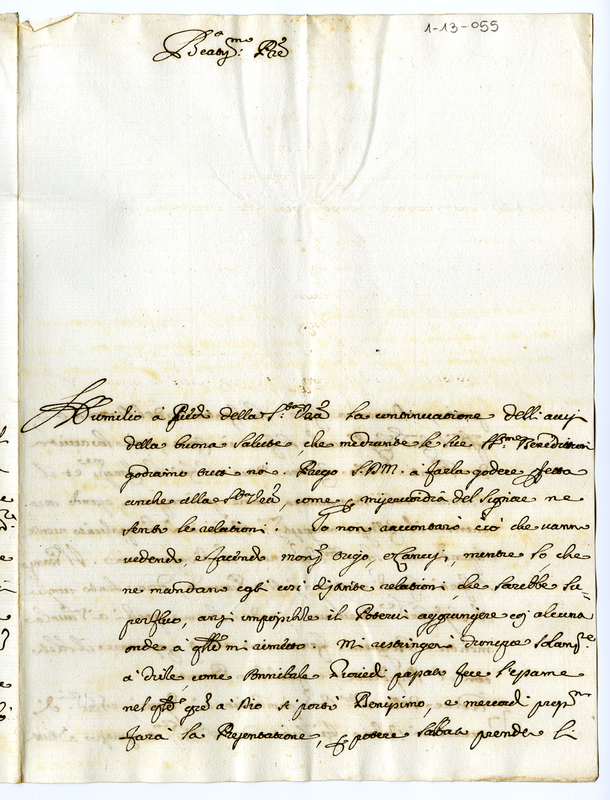 1-13-055
Beatis.mo Pre
Humilio a Piedi della S.tà Vra la continuatione delli avisi
della buona salute, che mediante le sue SS.me Benedittioni
godiamo tutti noi. Prego S.D.M. a farla godere perfetta
anche alla S.tà Vra, come per misericordia del Signore ne
sento le relationi. Io non raccontarò ciò che vanno
vedendo, e facendo mons.r, mentre so, che
ne mandano essi così distinte relationi, che sarebbe su=
perfluo, anzi impossibile il Potervi aggiungere cosa alcuna
onde a queste mi rimetto. Mi restringerò dunque solam.te
a dirle, come Annibale Giovedì passato fece l'esame
nel quale grà a Dio si portò Benissimo, e mercordì pross.mo
farà la Presentatione, per potere sabbato prender li